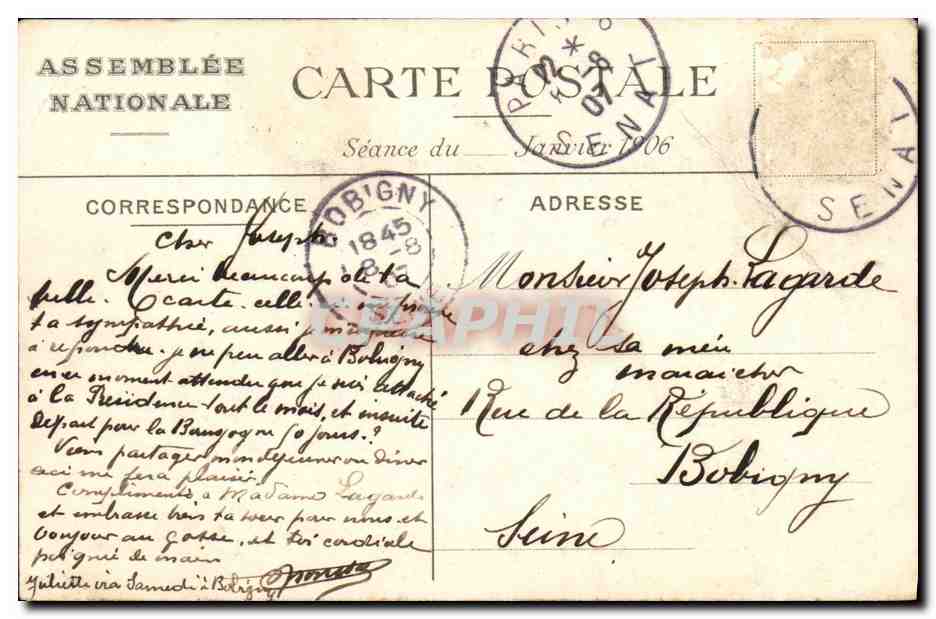 ASSEMBLÉE
NATIONALE
CARTE POSTALE
Séance du Janvier 1906
PARIS
12 * 8-8
07
SENAT
SENAT
CORRESPONDANCE
BOBIGNY
1845
8-8
ADRESSE
Cher Joseph
Merci beaucoup de ta
belle Carte, elle
ta sympathie, aussi je
à repondre. je ne peu aller à Bobigny
en ce moment attendu que je suis attaché
à la Présidence tout le mois, et ensuite
Départ pour la Bourgogne 50 jours.?
Viens partager mon déjeuner ou diner
ceci me fera plaisir
Compliments à Madame Lagarde
et embrasse bien ta soeur pour nous, et
bonjour au gosse, et toi cordiale
poignée de main
Juliette ira Samedi à Bobigny
Monsieur Joseph Lagarde
chez sa mère
maraicher
Rue de la République
Bobigny
Seine
CPAPHIL